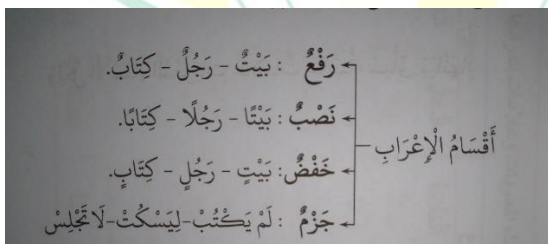 أَقْسَامُ الْإِعْرَابِ
رَفْعٌ : بَيْتٌ - رَجُلٌ - كِتَابٌ.
نَصْبٌ : بَيْتًا - رَجُلًا - كِتَابًا.
خَفْضٌ : بَيْتٍ - رَجُلٍ - كِتَابٍ.
جَزْمٌ : لَمْ يَكْتُبْ-لِيَسْكُتْ-لَا تَجْلِسْ